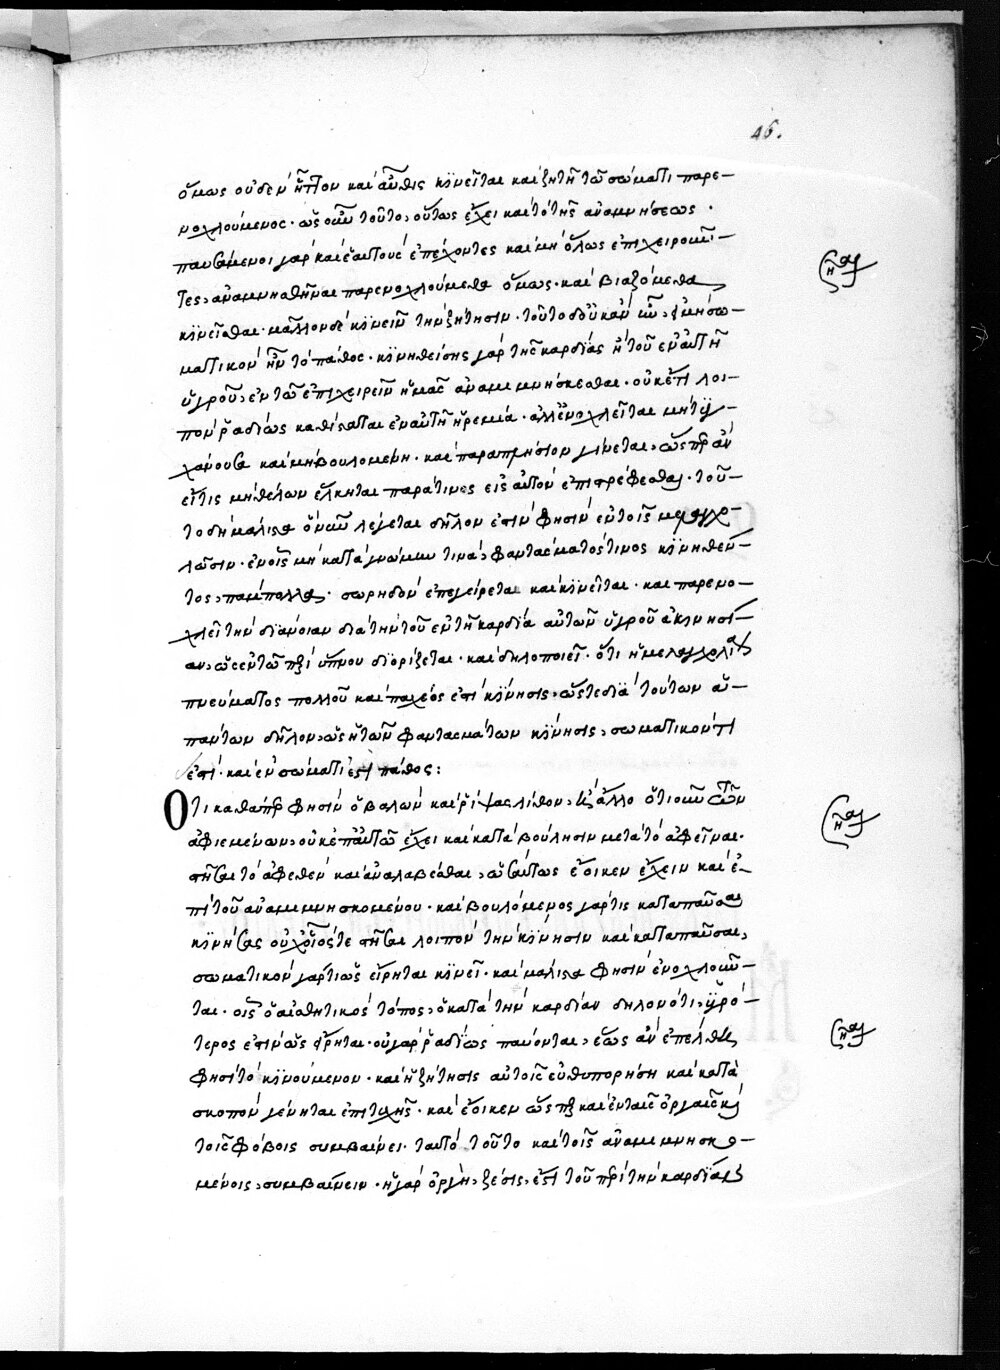 46.
ὅμως οὐδὲν ἧττον καὶ αὖθις κϊνεῖται καὶ ζητεῖ τῶ σώματι παρε-
νοχλούμενος. ὡς οὖν τοῦτο, οὕτως ἔχει καὶ τὸ τῆς ἀναμνήσεως.
παυσάμενοι γὰρ καὶ ἑαυτοὺς ἐπέχοντες καὶ μὴ ὅλως ἐπιχειροῦν-
τες, ἀναμνησθῆναι παρενοχλούμεθα ὅμως. καὶ βιαζόμεθα
κϊνεῖσθαι. μᾶλλον δὲ κϊνεῖν τὴν ζήτησιν. τοῦτο δ' οὐκ ἂν ἦν, εἰ μὴ σω-
ματικὸν ἦν τὸ πάθος. κϊνηθείσης γὰρ τῆς καρδίας ἢ τοῦ ἐν αὐτῆ
ὑγροῦ, ἐν τῶ ἐπιχειρεῖν ἡμᾶς ἀναμιμνήσκεσθαι. οὐκέτι λοι-
πὸν ῥαδίως καθίσταται ἐν αὐτῆ ἠρεμία. ἀλλ' ἐνοχλεῖται μὴ τυγ-
χάνουσα καὶ μὴ βουλομένη. καὶ παραπλήσιον γίνεται, ὥσπερ ἂν
εἴ τις μὴ θέλων ἕλκηται παρά τινος εἰς αὐτὸν ἐπιστρέφεσθαι. τοῦ-
το δὴ μάλιστα ὃ νῦν λέγεται δῆλον ἐστὶν φησὶν ἐν τοῖς μελαγχο-
λῶσιν. ἐν οἷς μὴ κατὰ γνώμην τινὰ, φαντάσματός τινος κϊνηθέν-
τος, πάμπολλα. σωρηδὸν ἐπεγείρεται καὶ κϊνεῖται. καὶ παρενο-
χλεῖ τὴν διάνοιαν διὰ τὴν τοῦ ἐν τῆ καρδία αὐτῶν ὑγροῦ ἀκινησί-
αν, ὡς ἐν τῶ περὶ ὕπνου διορίζεται. καὶ δηλοποιεῖ. ὅτι ἡ μελαγχολία
πνεύματος πολλοῦ καὶ παχέος ἐστὶ κϊνησις, ὥστε διὰ τούτων ἁ-
πάντων δῆλον, ὡς ἡ τῶν φαντασμάτων κϊνησις, σωματικόν τι
ἐστὶ. καὶ ἐν σώματι ἐστι πάθος:
Ὅτι καθάπερ φησὶν ὁ βαλὼν καὶ ῥίψας λίθον, ἢ ἄλλο ὁτιοῦν τῶν
ἀφιεμένων, οὐκ ἐπ' αὐτῶ ἔχει καὶ κατὰ βούλησιν μετὰ τὸ ἀφεῖναι.
στῆσαι τὸ ἀφεθὲν καὶ ἀναλαβέσθαι, ὡσαύτως ἔοικεν ἔχειν καὶ ἐ-
πὶ τοῦ ἀναμιμνησκομένου. καὶ βουλόμενος γάρ τις καταπαῦσαι
κϊνήσας οὐχ οἷός τε στῆσαι λοιπὸν τὴν κϊνησιν καὶ καταπαῦσαι,
σωματικὸν γάρ τι ὡς εἴρηται κϊνεῖ. καὶ μάλιστα φησὶν ἐνοχλοῦν-
ται. οἷς ὁ αἰσθητικὸς τόπος, ὁ κατὰ τὴν καρδίαν δηλονότι, ὑγρό-
τερος ἐστὶν ὡς εἴρηται. οὐ γὰρ ῥαδίως παύονται, ἕως ἂν ἐπέλθη
φησὶ τὸ κϊνούμενον. καὶ ἡ ζήτησις αὐτοῖς εὐθυπορήση καὶ κατὰ
σκοπὸν γένηται ἐπιτυχὴς. καὶ ἔοικεν ὥσπερ καὶ ἐν ταῖς ὀργαῖς καὶ
τοῖς φόβοις συμβαίνει. ταυτὸ τοῦτο καὶ τοῖς ἀναμιμνησκο-
μένοις, συμβαίνειν. ἡ γὰρ ὀργὴ, ζέσις, ἐστὶ τοῦ περὶ τὴν καρδίαν